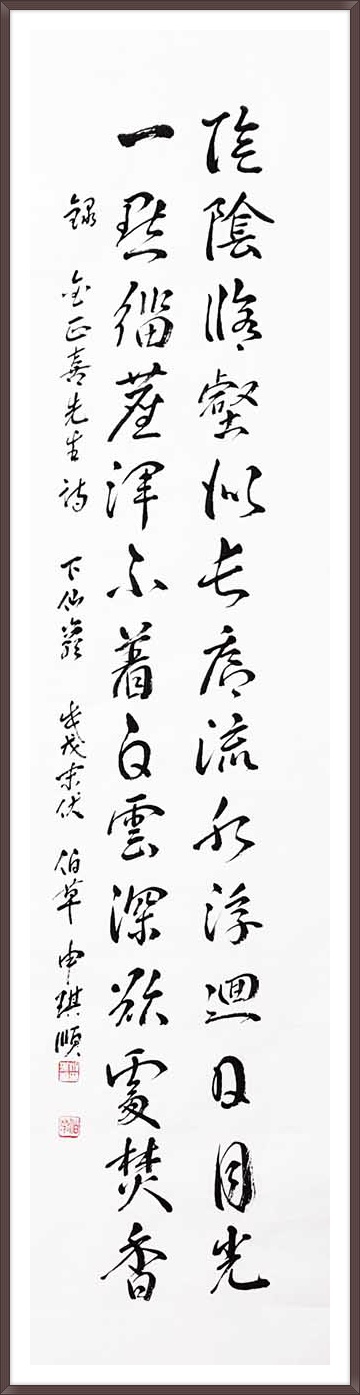 陰陰脩壑似長廊流水浮迴日月光
一點緇塵渾不着白雲深欲處焚香
錄 金正喜先生詩 下仙巖 戊戌末伏 伯草 申琪順